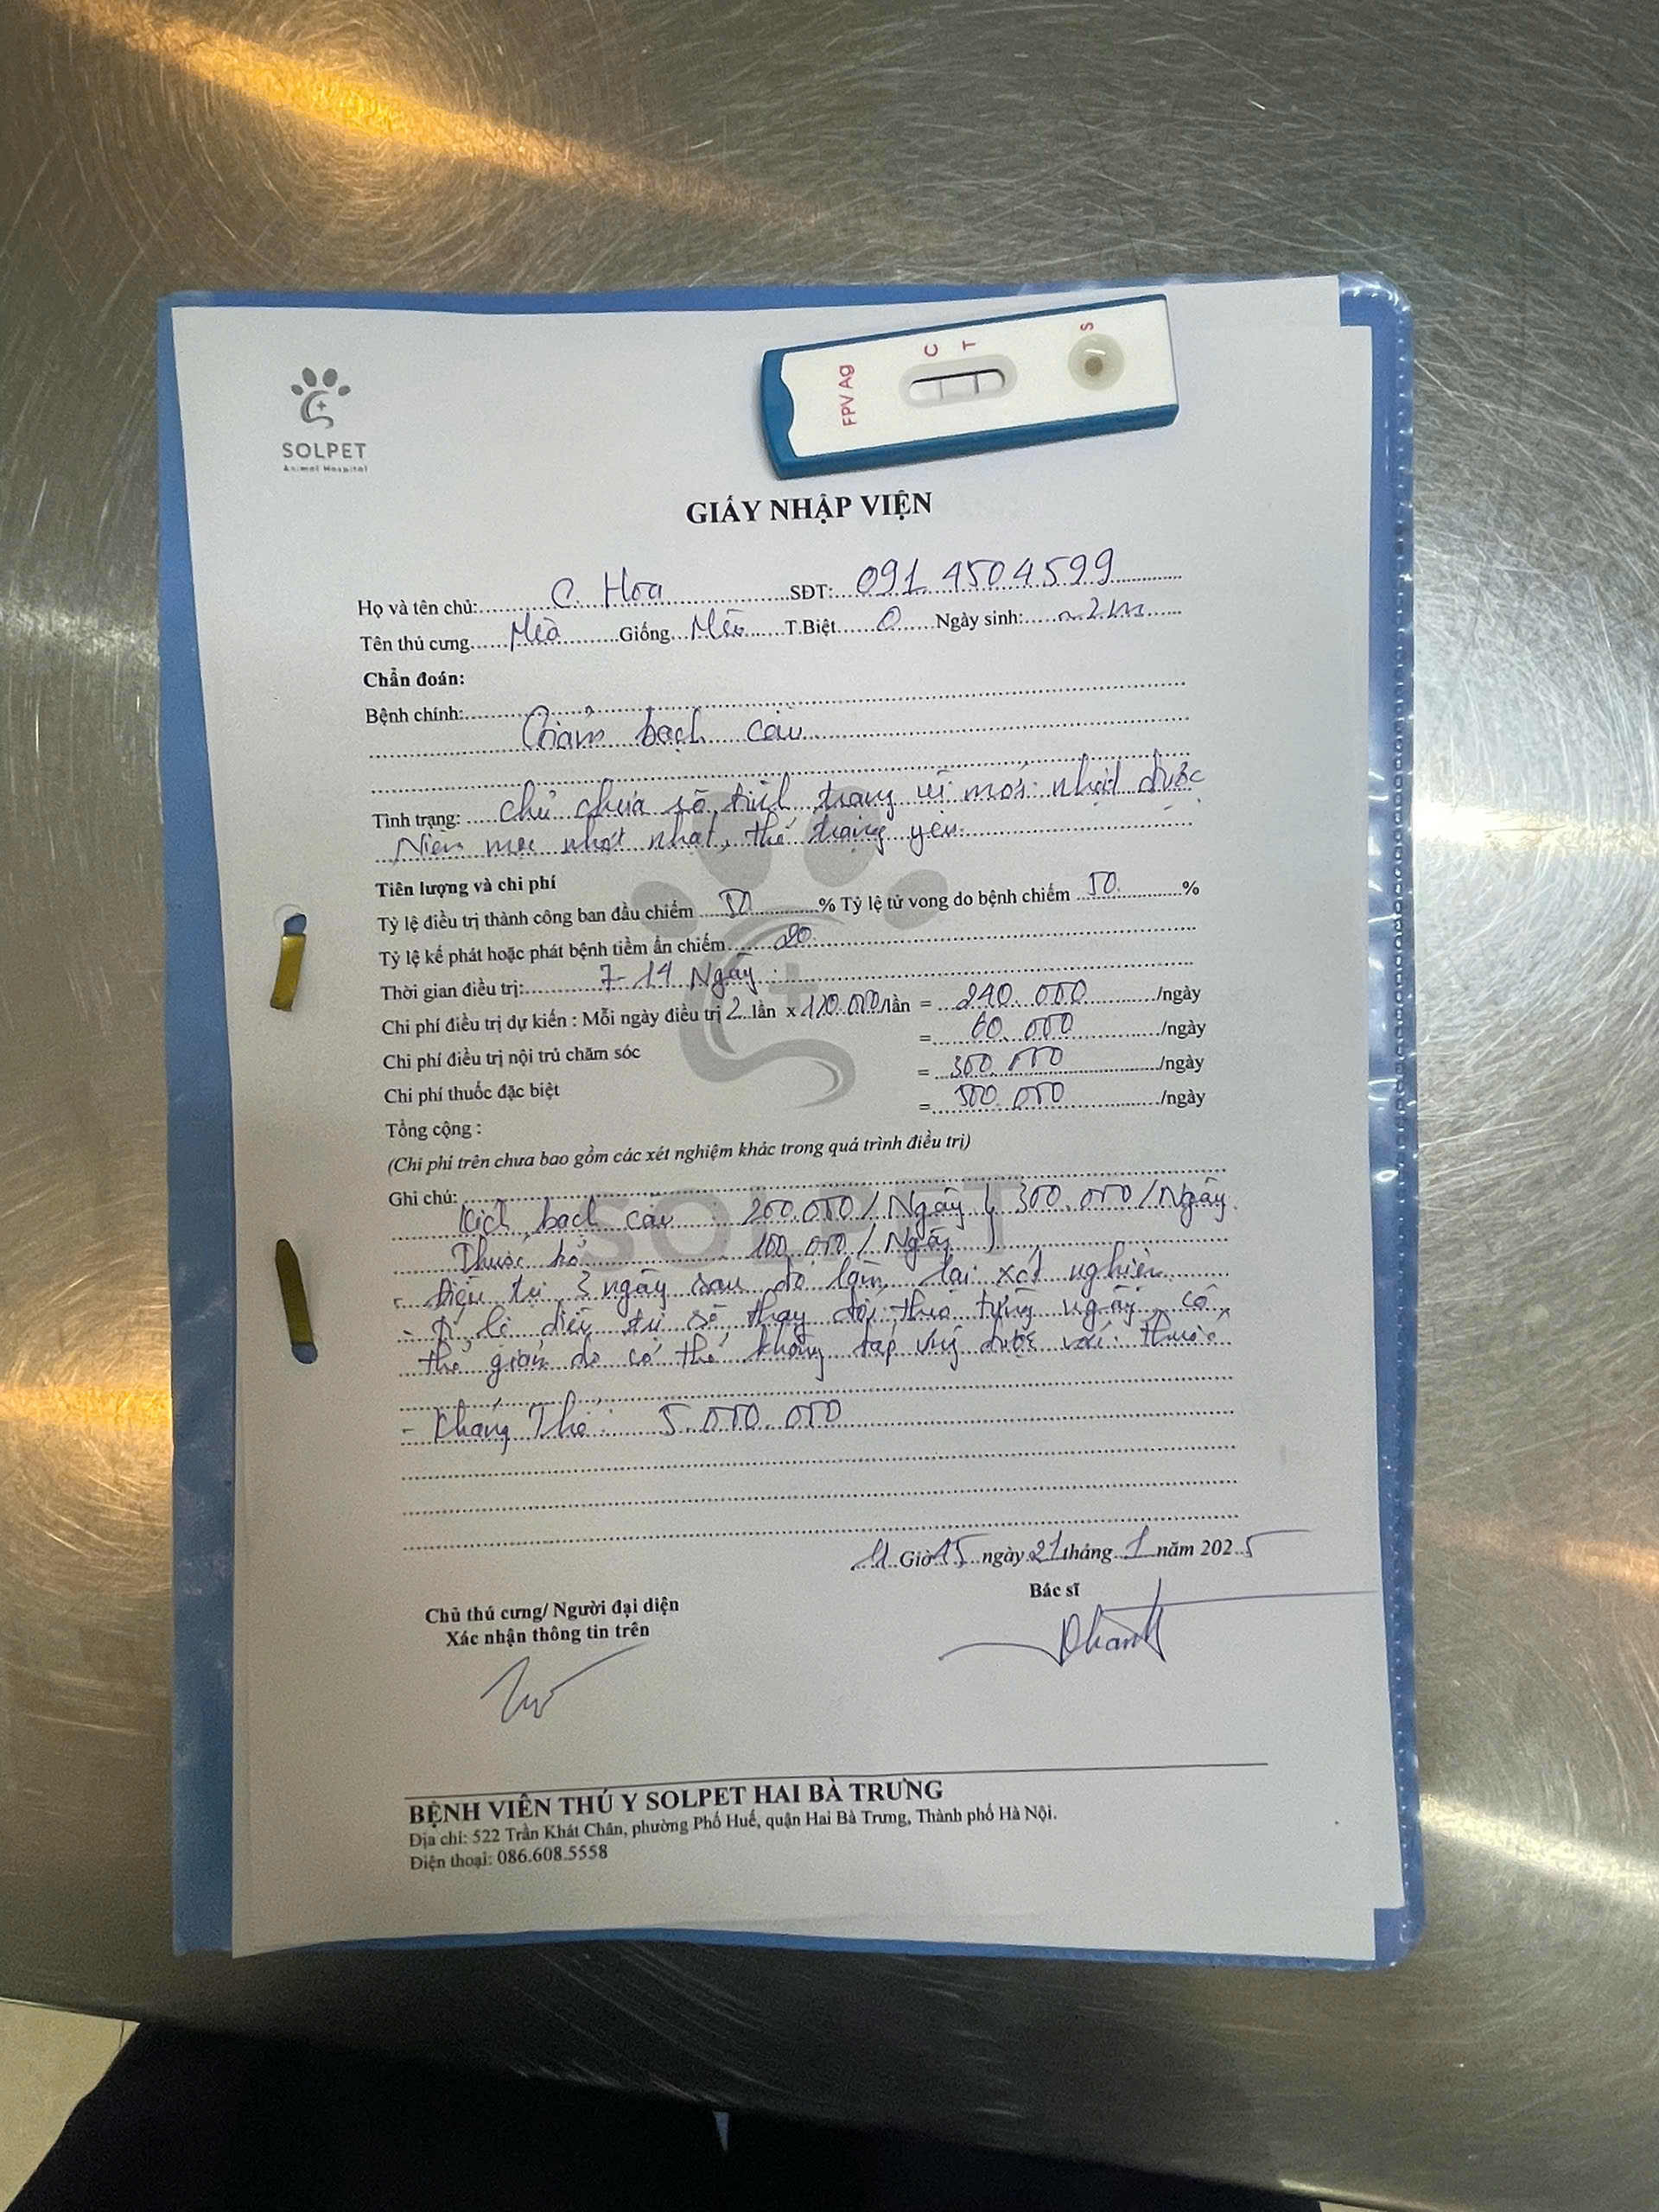 FPV Ag
C
T
S
SOLPET
Animal Hospital
GIẤY NHẬP VIỆN
Họ và tên chủ: C. Hoa SĐT: 091.4504599
Tên thú cưng Giống Mèo T.Biệt 0 Ngày sinh: ~2m
Chẩn đoán:
Bệnh chính:
Giảm bạch cầu
Tình trạng: chủ chưa rõ tình trạng vì mới nhặt được
Niêm mạc nhợt nhạt, thể trạng yếu
Tiên lượng và chi phí
Tỷ lệ điều trị thành công ban đầu chiếm 50 % Tỷ lệ tử vong do bệnh chiếm 50 %
Tỷ lệ kế phát hoặc phát bệnh tiềm ẩn chiếm 20
Thời gian điều trị: 7-14 Ngày
Chi phí điều trị dự kiến : Mỗi ngày điều trị 2 lần x 120.000/lần = 240.000 /ngày
Chi phí điều trị nội trú chăm sóc = 60.000 /ngày
Chi phí thuốc đặc biệt = 300.000 /ngày
Tổng cộng : = /ngày
(Chi phí trên chưa bao gồm các xét nghiệm khác trong quá trình điều trị)
Ghi chú:
Kích bạch cầu : 200.000 / Ngày } 300.000 / Ngày
Thuốc bổ 100.000 / Ngày
- Điều trị 3 ngày sau đó làm lại xét nghiệm
- Tỉ lệ điều trị sẽ thay đổi theo từng ngày, có
thể giảm do có thể không đáp ứng được với thuốc
- Kháng Thể : 5.000.000
SOLPET
11 Giờ 15 ngày 21 tháng 1 năm 2025
Chủ thú cưng/ Người đại diện
Xác nhận thông tin trên
Bác sĩ
BỆNH VIỆN THÚ Y SOLPET HAI BÀ TRƯNG
Địa chỉ: 522 Trần Khát Chân, phường Phố Huế, quận Hai Bà Trưng, Thành phố Hà Nội.
Điện thoại: 086.608.5558